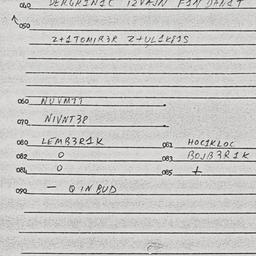 040 DERGHINIC IZVAJN FIM DANIT
050
Z+1TOMIR3R Z+UL1KP1S
060 NUVM11
070 NIVNT3P
080 LEMB3R1K 081 HOC1KLOC
082 0 083 BOJB3R1K
084 0 085 +
090 — QINBUD